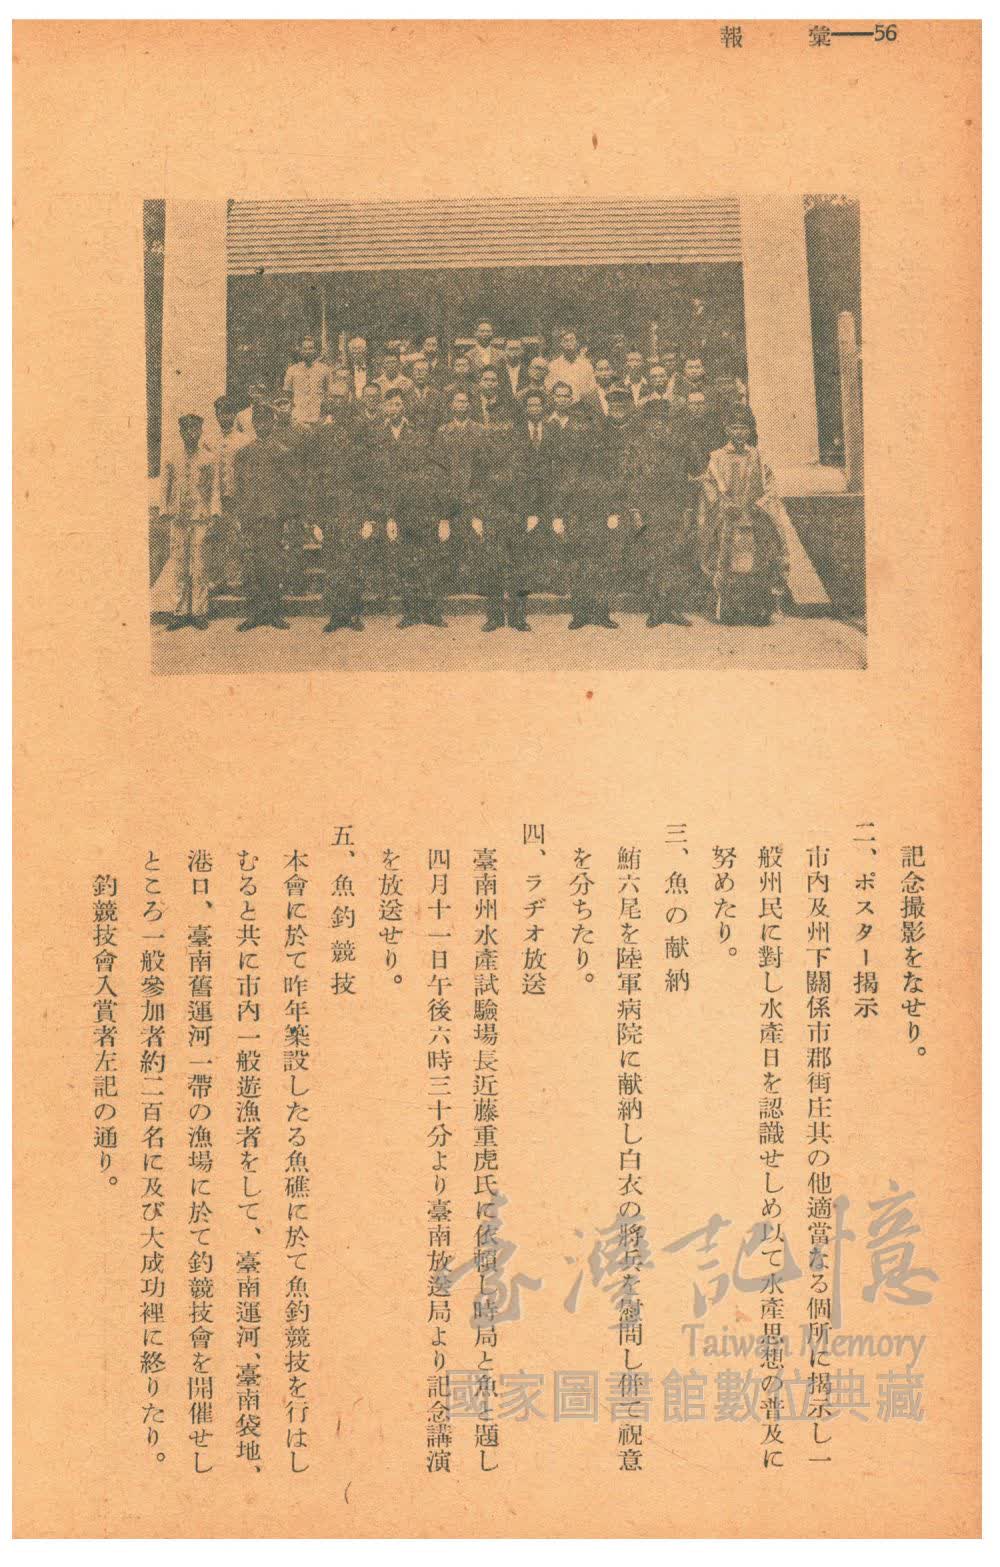 彙報——56
記念撮影をなせり。
二、ポスター揭示
市內及州下關係市郡街庄其の他適當なる個所に揭示し一
般州民に對し水產日を認識せしめ以て水產思想の普及に
努めたり。
三、魚の献納
鮪六尾を陸軍病院に献納し白衣の將兵を慰問し併て祝意
を分ちたり。
四、ラヂオ放送
臺南州水產試驗場長近藤重虎氏に依賴し時局と魚と題し
四月十一日午後六時三十分より臺南放送局より記念講演
を放送せり。
五、魚釣競技
本會に於て昨年築設したる魚礁に於て魚釣競技を行はし
むると共に市內一般遊漁者をして、臺南運河、臺南袋地、
港口、臺南舊運河一帶の漁場に於て釣競技會を開催せし
ところ一般參加者約二百名に及び大成功裡に終りたり。
釣競技會入賞者左記の通り。
臺灣記憶
Taiwan Memory
國家圖書館數位典藏